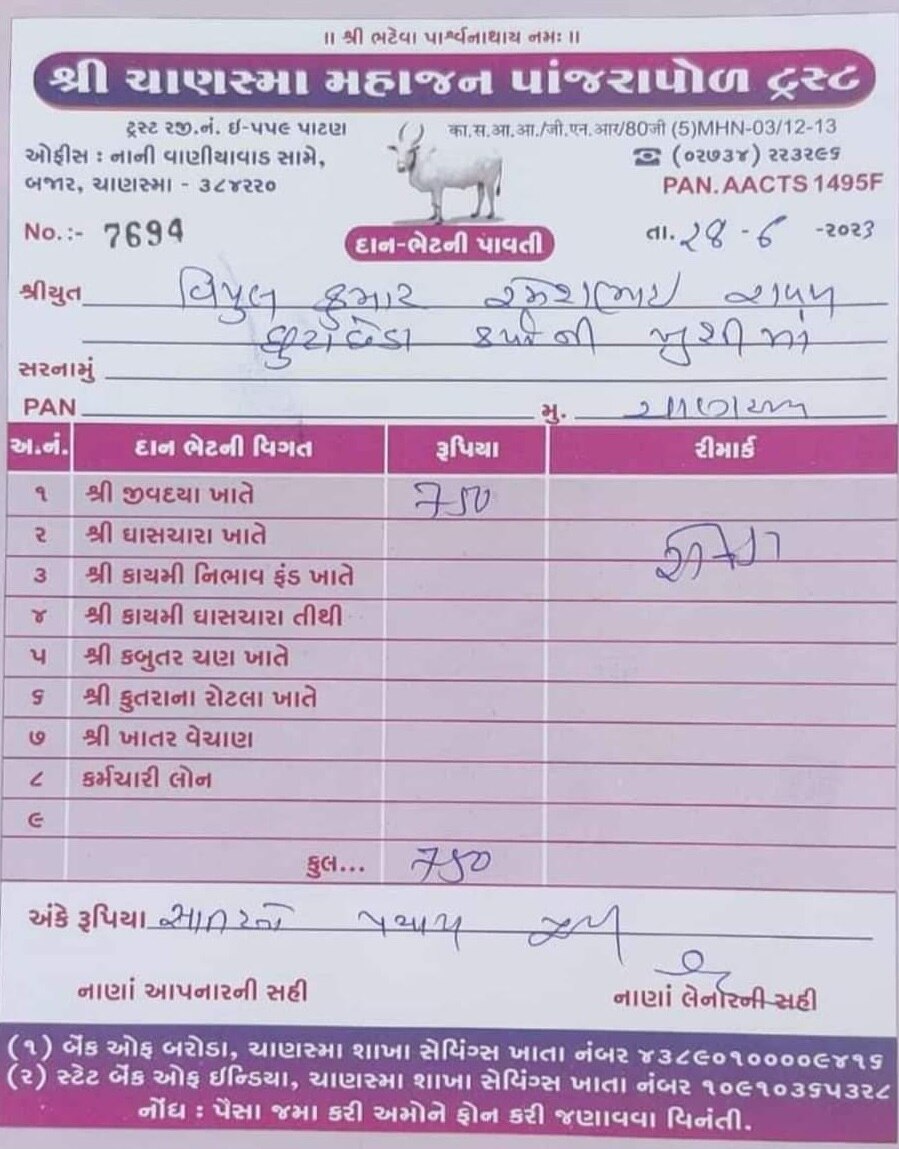 ॥ શ્રી ભટેવા પાર્શ્વનાથાય નમઃ ॥
શ્રી ચાણસ્મા મહાજન પાંજરાપોળ ટ્રસ્ટ
ટ્રસ્ટ રજી.નં. ઈ-૫૫૯ પાટણ
का.स.आ.आ./जी.एन.आर/80जी (5)MHN-03/12-13
ઓફીસ : નાની વાણીયાવાડ સામે,
☎ (૦૨૭૩૪) ૨૨૩૨૯૬
બજાર, ચાણસ્મા - ૩૮૪૨૨૦
PAN. AACTS 1495F
No. :- 7694
દાન-ભેટની પાવતી
તા. ૨૮ - ૬ -૨૦૨૩
શ્રીયુત વિપુલ કુમાર રમેશભાઈ રાવળ
છુટાછેડા કર્યાની ખુશીમાં
સરનામું
PAN
મુ. ચાણસ્મા
અ.નં. દાન ભેટની વિગત રૂપિયા રીમાર્ક
૧ શ્રી જીવદયા ખાતે ૭૫૦
૨ શ્રી ઘાસચારા ખાતે
રોકડા
૩ શ્રી કાયમી નિભાવ ફંડ ખાતે
૪ શ્રી કાયમી ઘાસચારા તીથી
૫ શ્રી કબુતર ચણ ખાતે
૬ શ્રી કુતરાના રોટલા ખાતે
૭ શ્રી ખાતર વેચાણ
૮ કર્મચારી લોન
૯
કુલ... ૭૫૦
અંકે રૂપિયા સાતસો પચાસ
નાણાં આપનારની સહી
નાણાં લેનારની સહી
(૧) બેંક ઓફ બરોડા, ચાણસ્મા શાખા સેવિંગ્સ ખાતા નંબર ૪૩૮૯૦૧૦૦૦૦૯૪૧૬
(૨) સ્ટેટ બેંક ઓફ ઈન્ડિયા, ચાણસ્મા શાખા સેવિંગ્સ ખાતા નંબર ૧૦૯૧૦૩૬૫૩૨૮
નોંધ : પૈસા જમા કરી અમોને ફોન કરી જણાવવા વિનંતી.